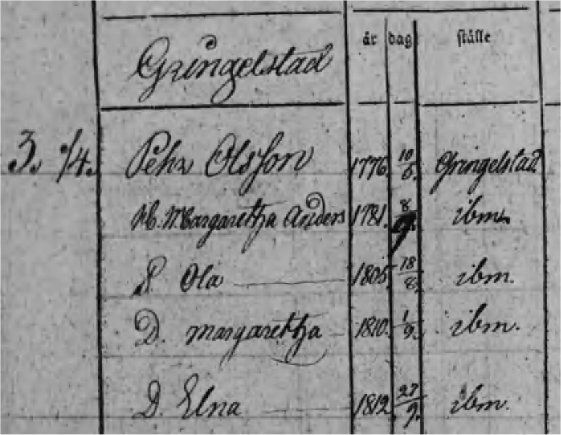 Gringelstad år dag ställe
3. 1/4. Pehr Olsson 1776 10/6. Gringelstad
H. Margaretha Anders 1781. 8/9. ibm.
S Ola 1805 18/8. ibm.
D. Margaretha 1810. 1/9. ibm.
D. Elna 1812 27/9. ibm.